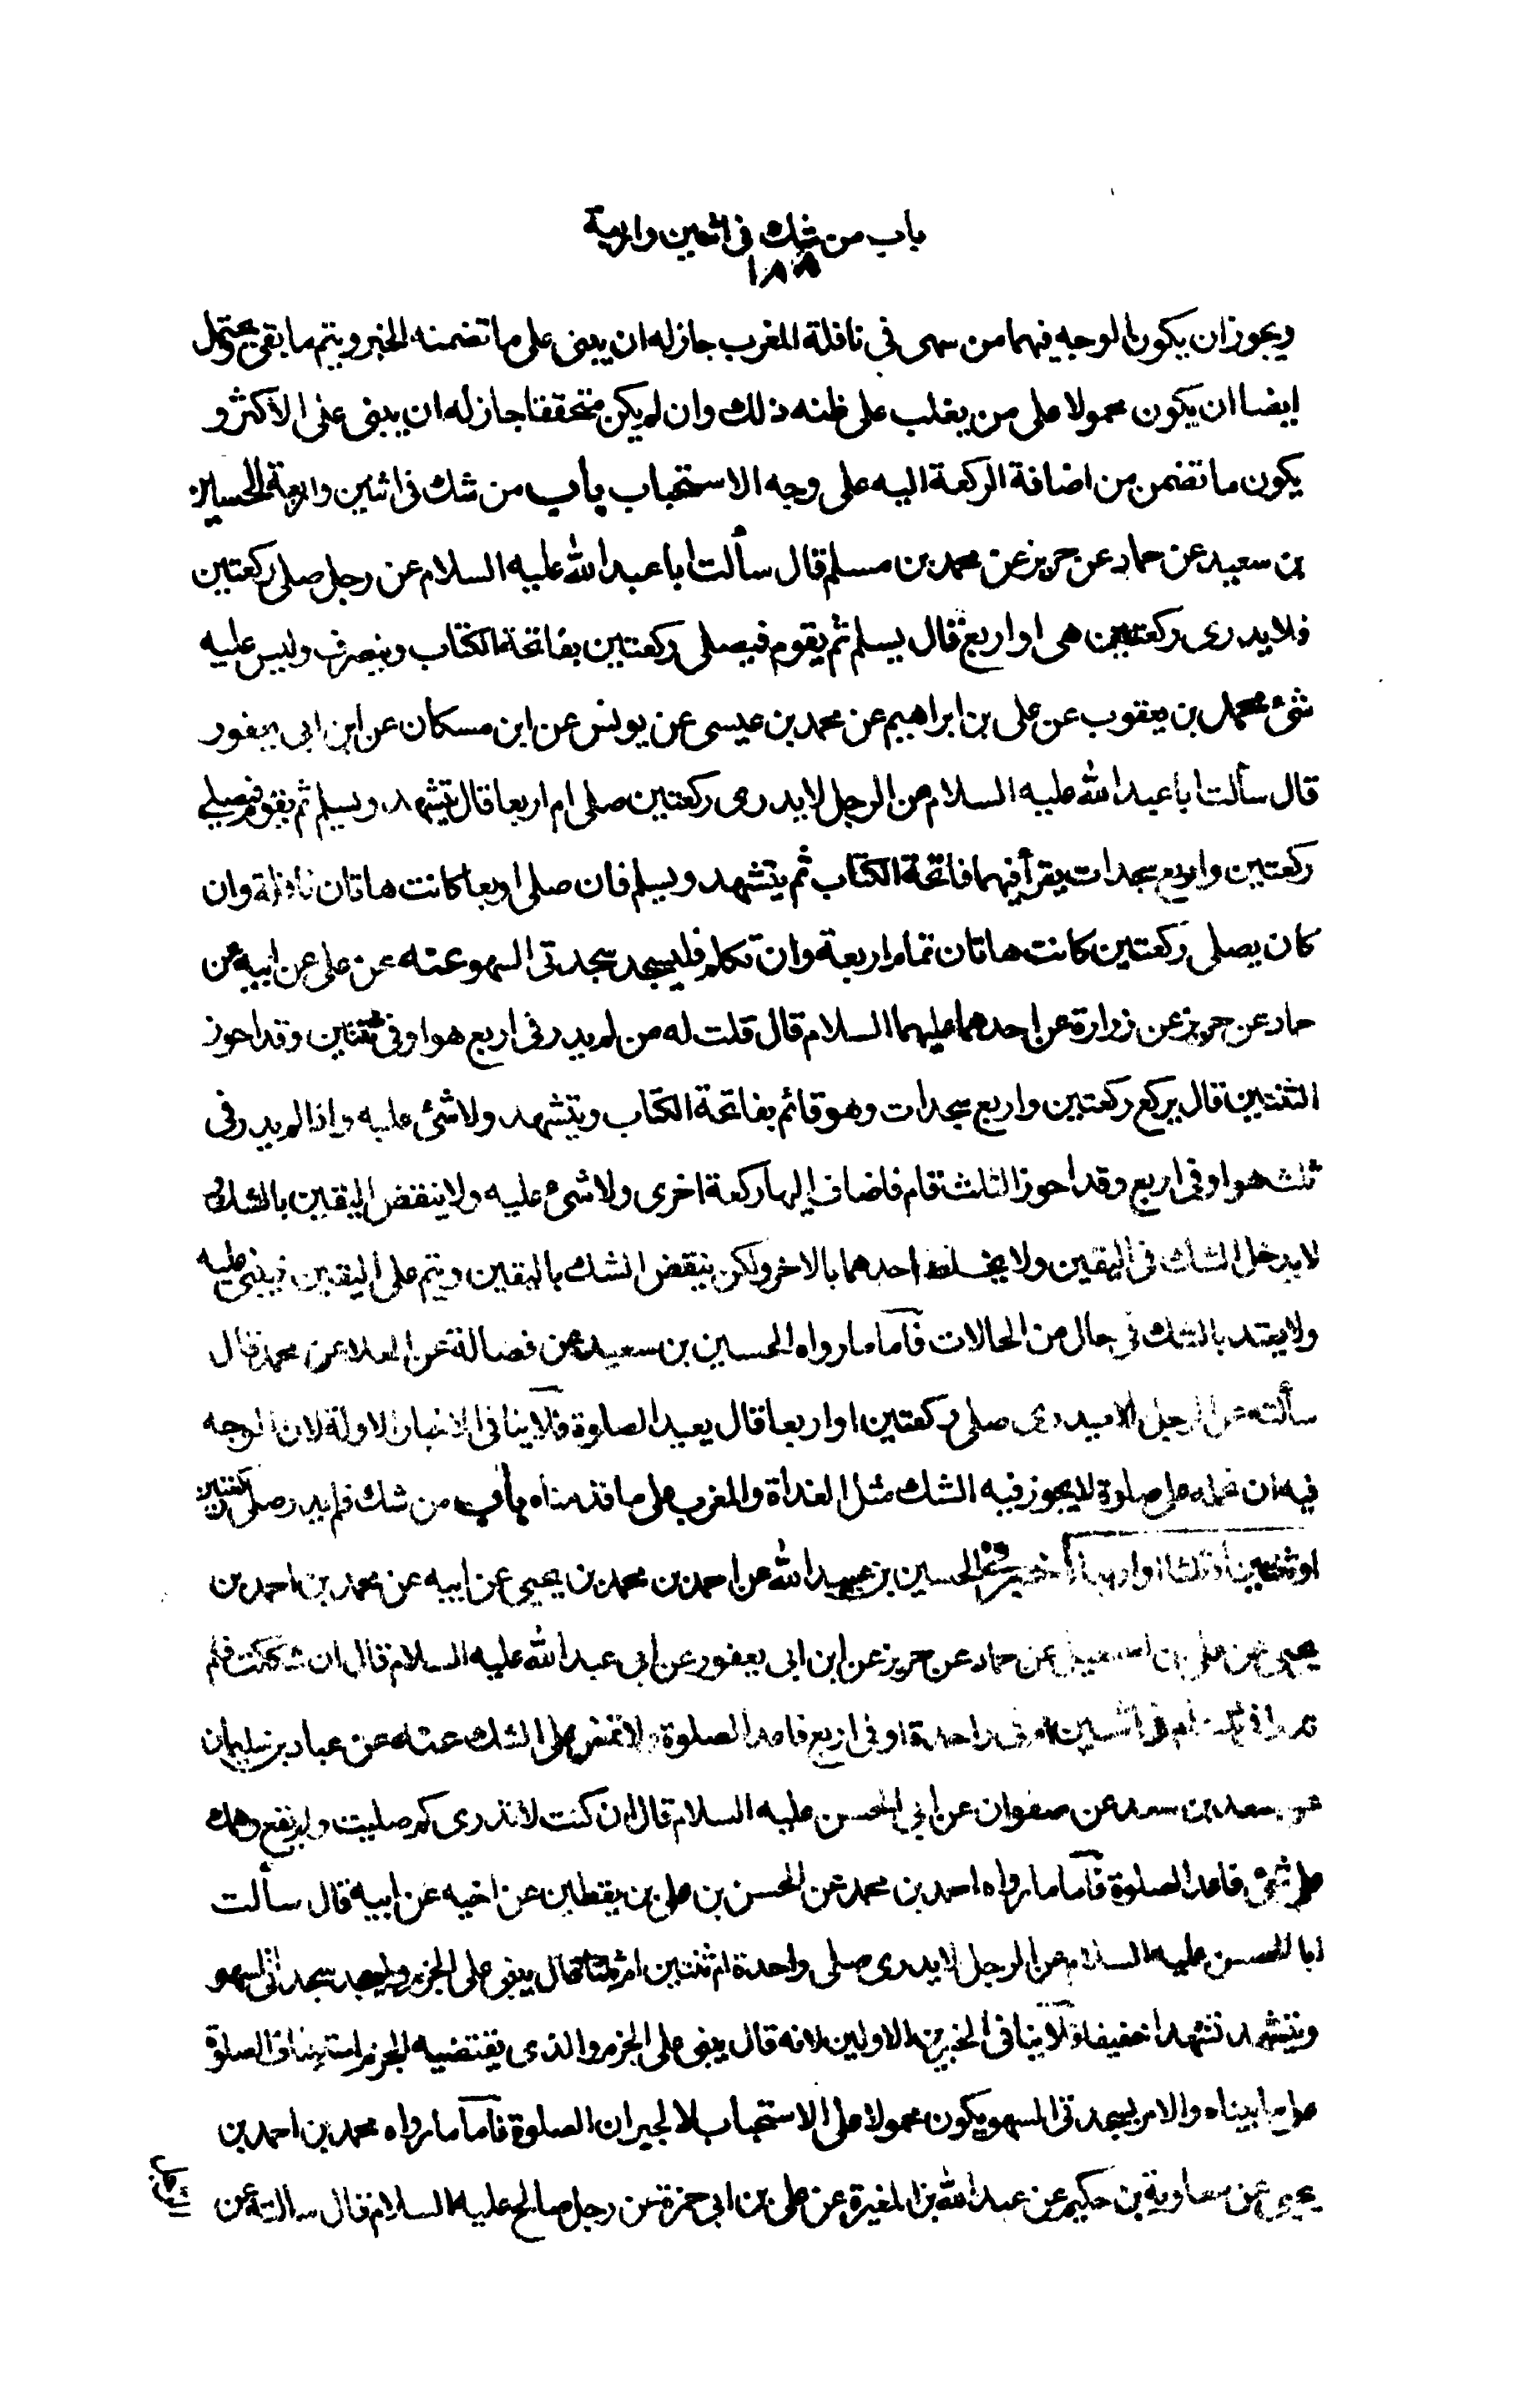 باب من شك في اثنين واربعة
١٨٨
ويجوز ان يكون الوجه فيهما من سهى في نافلة المغرب جاز له ان يبنى على ما تضمنه الخبر ويتم ما بقى ويحتمل
ايضا ان يكون محمولا على من يغلب على ظنه ذلك وان لم يكن متحققا جاز له ان يبنى على الاكثر و
يكون ما تضمن من اضافة الركعة اليه على وجه الاستحباب باب من شك في اثنين واربعة الحسين
بن سعيد عن حماد عن حريز عن محمد بن مسلم قال سألت ابا عبد الله عليه السلام عن رجل صلى ركعتين
فلا يدرى ركعتين هى او اربع قال يسلم ثم يقوم فيصلى ركعتين بفاتحة الكتاب وينصرف وليس عليه
شئ محمد بن يعقوب عن على بن ابراهيم عن محمد بن عيسى عن يونس عن ابن مسكان عن ابن ابى يعفور
قال سألت ابا عبد الله عليه السلام عن الرجل لا يدرى ركعتين صلى ام اربعا قال يتشهد ويسلم ثم يقوم فيصلي
ركعتين واربع سجدات يقرأ فيهما فاتحة الكتاب ثم يتشهد ويسلم فان صلى اربعا كانت هاتان نافلة وان
كان يصلى ركعتين كانت هاتان تمام اربعة وان تكلم فليسجد سجدتى السهو عنه عن على عن ابيه عن
حماد عن حريز عن زرارة عن احدهما عليهما السلام قال قلت له من لم يدر فى اربع هو او فى ثنتين وقد احوز
الثنتين قال يركع ركعتين واربع سجدات وهو قائم بفاتحة الكتاب ويتشهد ولا شئ عليه واذا لم يدر فى
ثلث هو او فى اربع وقد احوز الثلث قام فاضاف اليها ركعة اخرى ولا شئ عليه ولا ينقض اليقين بالشك و
لا يدخل الشك فى اليقين ولا يخلط احدهما بالاخر ولكن ينقض الشك باليقين ويتم على اليقين فيبنى عليه
ولا يعتد بالشك فى حال من الحالات فآما ما رواه الحسين بن سعيد عن فضالة عن العلا عن محمد قال
سألته عن الرجل لا يدرى صلى ركعتين او اربعا قال يعيد الصلوة فلا ينافى الاخبار الاولة لان الوجه
فيه ان نحمله على صلوة لا يجوز فيه الشك مثل الغداة والمغرب على ما قدمناه باب من شك فلم يدر صلى ركعة
او ثنتين او ثلثا او اربعا اخبرنى الحسين بن عبيد الله عن احمد بن محمد بن يحيى عن ابيه عن محمد بن احمد بن
يحيى عن على بن اسمعيل عن حماد عن حريز عن ابن ابى يعفور عن ابى عبد الله عليه السلام قال ان شككت فلم
تدر افى ثلث ام فى اثنتين ام فى واحدة او فى اربع فاعد الصلوة ولا تمض على الشك عنه عن عباد بن سليمان
عن سعد بن سعد عن صفوان عن ابى الحسن عليه السلام قال ان كنت لا تدرى كم صليت ولم يقع وهمك
على شئ فاعد الصلوة فآما ما رواه احمد بن محمد عن الحسن بن على بن يقطين عن اخيه عن ابيه قال سألت
ابا الحسن عليه السلام عن الرجل لا يدرى صلى واحدة ام ثنتين ام ثلثا قال يبنى على الجزم ويسجد سجدتى السهو
ويتشهد تشهدا خفيفا فلا ينافى الخبرين الاولين لانه قال يبنى على الجزم والذى يقتضيه الجزم استيناف الصلوة
على ما بيناه والامر بسجدتى السهو يكون محمولا على الاستحباب لا لجبران الصلوة فآما ما رواه محمد بن احمد بن
يحيى عن معاوية بن حكيم عن عبد الله بن المغيرة عن على بن ابى حمزة عن رجل صالح عليه السلام قال سالته عن